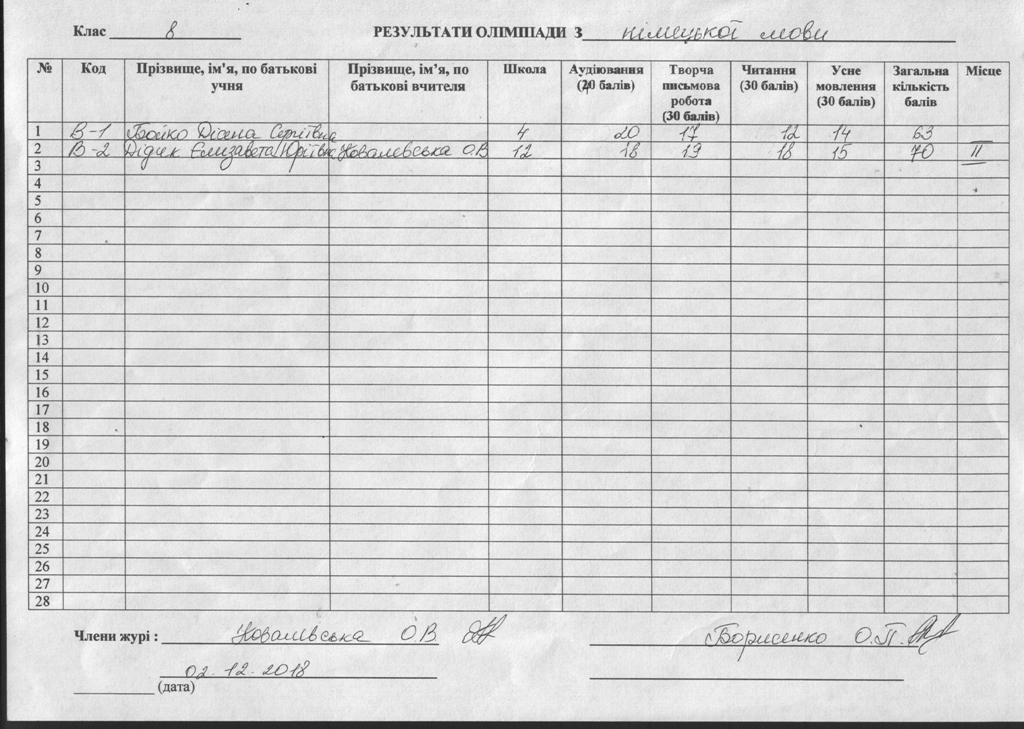 Клас 8 РЕЗУЛЬТАТИ ОЛІМПІАДИ З німецької мови
№ Код Прізвище, ім'я, по батькові учня Прізвище, ім'я, по батькові вчителя Школа Аудіювання (20 балів) Творча письмова робота (30 балів) Читання (30 балів) Усне мовлення (30 балів) Загальна кількість балів Місце
1 В-1 Бойко Діана Сергіївна 4 20 17 12 14 63
2 В-2 Дідик Єлизавета Юріївна Ковалевська О.В 12 18 19 18 15 70 II
3
4
5
6
7
8
9
10
11
12
13
14
15
16
17
18
19
20
21
22
23
24
25
26
27
28
Члени журі : Ковалевська О В Борисенко О.П.
02.12.2018
(дата)